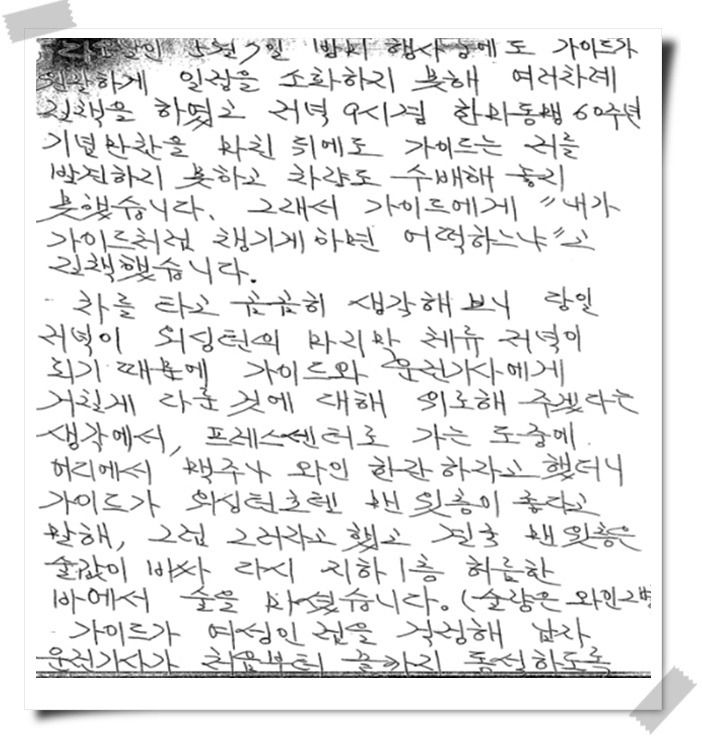 7일 방미 행사중에도 가이드가
원활하게 일정을 소화하지 못해 여러차례
질책을 하였고 저녁 9시경 한미동맹 60주년
기념만찬을 마친 뒤에도 가이드는 저를
발견하지 못하고 차량도 수배해 놓지
못했습니다. 그래서 가이드에게 "내가
가이드처럼 챙기게하면 어떡하느냐"고
질책했습니다.
차를 타고 곰곰히 생각해 보니 당일
저녁이 워싱턴의 마지막 체류 저녁이
되기 때문에 가이드와 운전기사에게
거칠게 다룬 것에 대해 위로해 주겠다는
생각에서, 프레스센터로 가는 도중에
어디에서 맥주나 와인 한잔 하자고 했더니
가이드가 워싱턴호텔 맨 윗층이 좋다고
말해, 그럼 그러라고 했고 결국 맨 윗층은
술값이 비싸 다시 지하 1층 허름한
바에서 술을 마셨습니다. (술량은 와인 2병
가이드가 여성인 점을 걱정해 남자
운전기사가 처음부터 끝까지 동석하도록